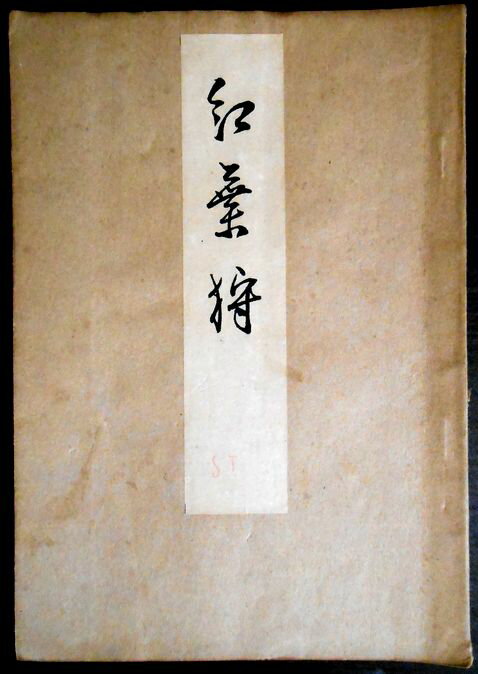 紅葉狩
ST